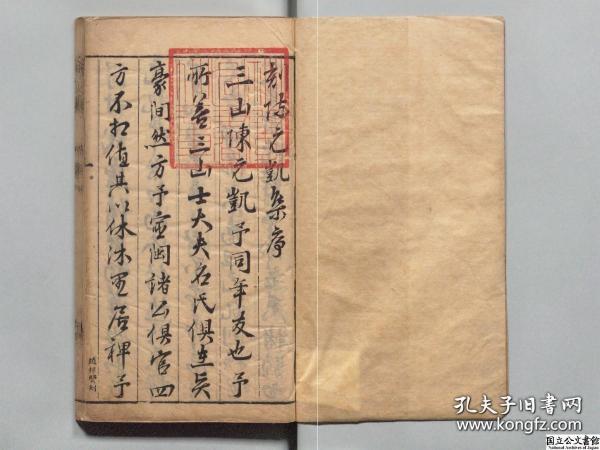 刻陳元凱集序
三山陳元凱予同年友也予
所善三山士大夫名氏俱在吳
豪间然方予宦閩諸公俱官四
方不相值其以休沐里居裨予
孔夫子旧书网
www.kongfz.com
国立公文書館
National Archives of Japan